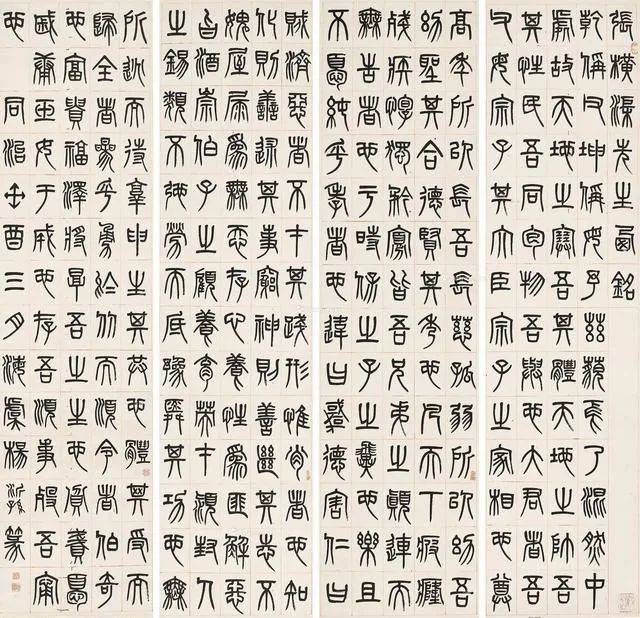 張橫渠先生西銘
乾偁父坤偁母予茲藐焉乃混然中
處故天地之塞吾其體天地之帥吾
其性民吾同胞物吾與也大君者吾
父母宗子其大臣宗子之家相也尊
高年所以長吾長慈孤弱所以幼吾
幼聖其合德賢其秀也凡天下疲癃
殘疾惸獨鰥寡皆吾兄弟之顛連而
無告者也于時保之子之翼也樂且
不憂純乎孝者也違曰悖德害仁曰
賊濟惡者不才其踐形惟肖者也知
化則善述其事窮神則善繼其志不
愧屋漏為無忝存心養性為匪懈惡
旨酒崇伯子之顧養育英才潁封人
之錫類不弛勞而厎豫舜其功也無
所逃而待烹申生其恭也體其受而
歸全者參乎勇於從而順令者伯奇
也富貴福澤將厚吾之生也貧賤憂
戚庸玉女于成也存吾順事歿吾寧
也 同治癸酉三月濠叟楊沂孫篆